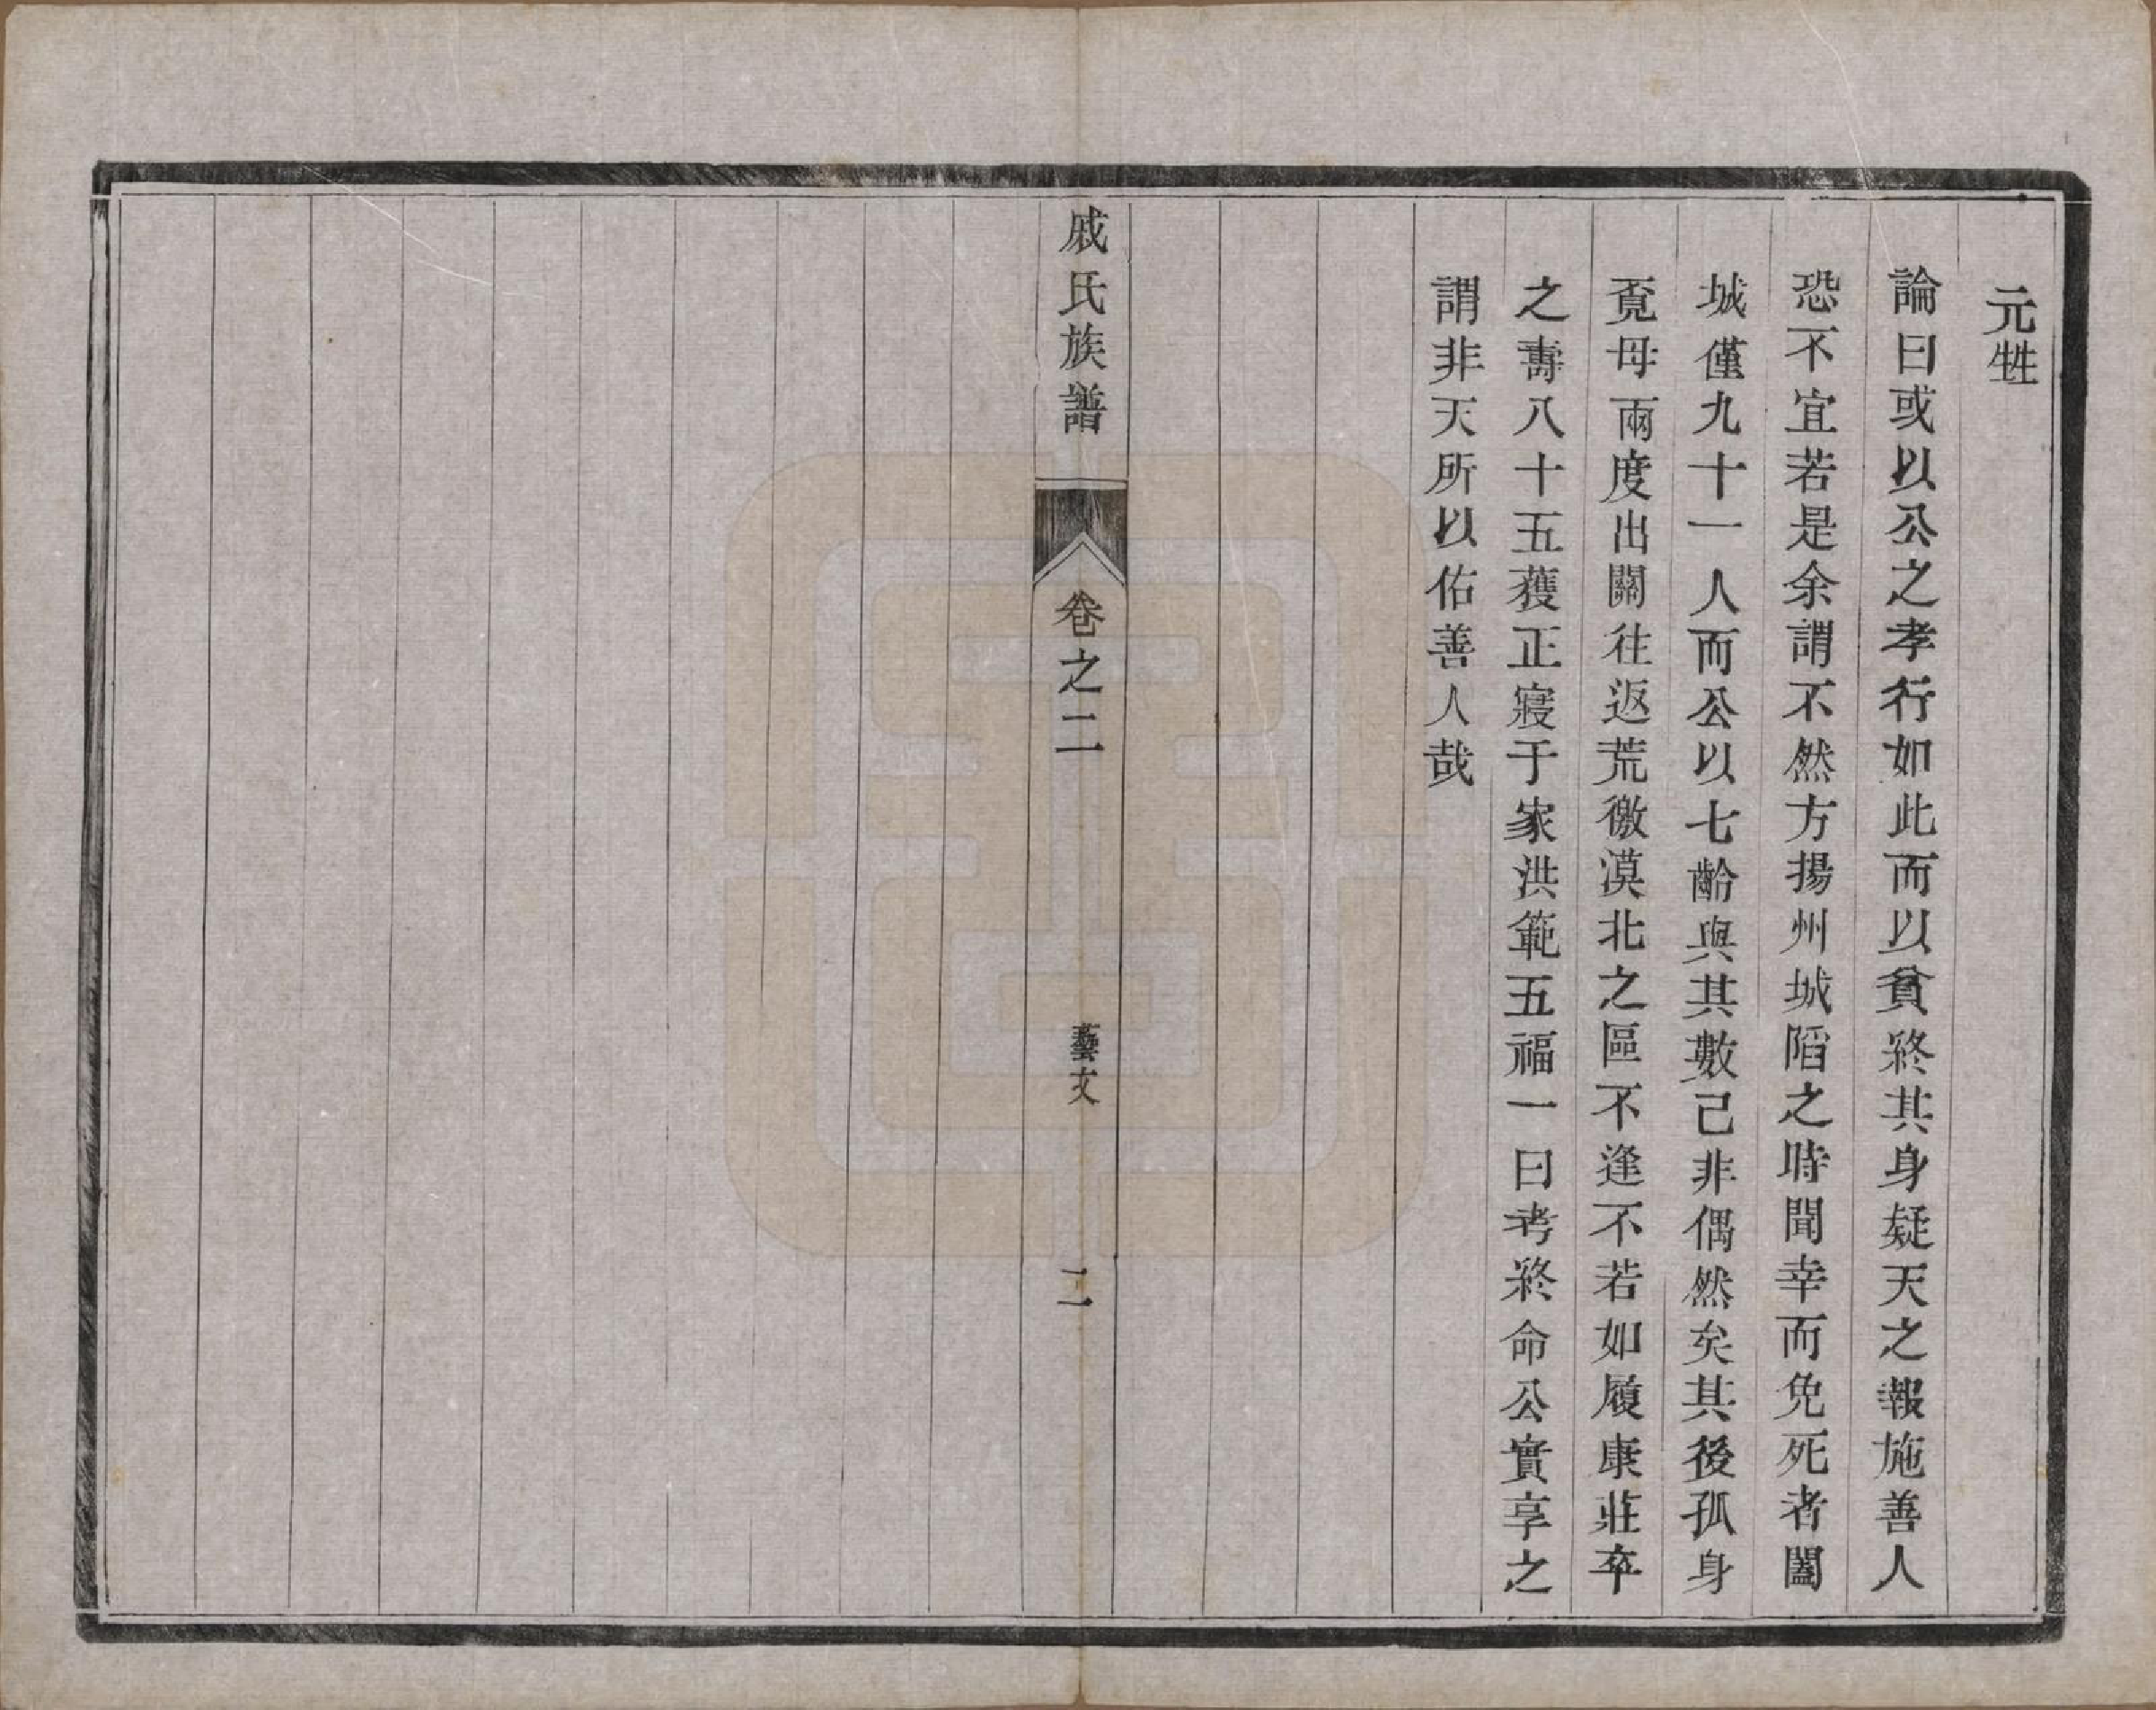 元甡
論曰或以公之孝行如此而以貧終其身疑天之報施善人
恐不宜若是余謂不然方揚州城陷之時聞幸而免死者闔
城僅九十一人而公以七齡與其數己非偶然矣其後孤身
覔母兩度出關往返荒徼漠北之區不逢不若如履康莊卒
之壽八十五獲正寢于家洪範五福一曰考終命公實享之
謂非天所以佑善人哉
戚氏族譜
卷之二
藝文
二